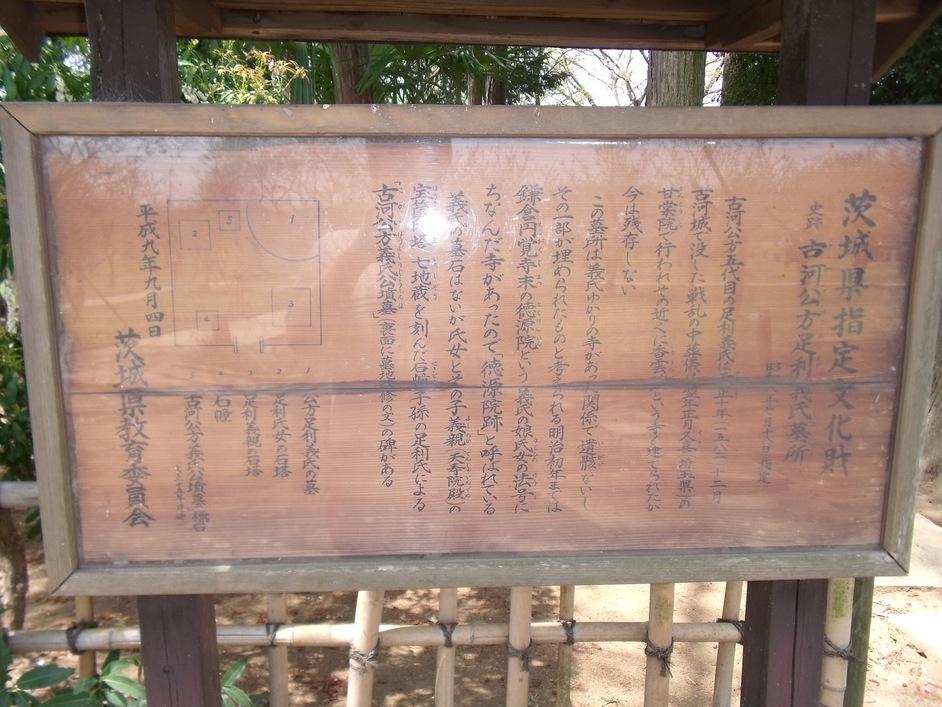 茨城県指定文化財
史跡 古河公方足利義氏墓所
日指定
古河公方五代目の足利義氏は天正十年(一五八二)十二月
古河城に没した戦乱の中葬儀は翌年正月久喜(埼玉県)の
甘棠院で行われその近くに香雲という寺を建てられたが
今は残存しない
この墓所は義氏ゆかりの寺があった関係で遺骸ないし
その一部が埋められたものと考えられる明治初年までは
鎌倉円覚寺末の徳源院という義氏の娘氏女の法号に
ちなんだ寺があったので「徳源院跡」と呼ばれている
義氏の墓石はないが氏女とその子義親(天寿院殿)の
宝篋印塔七地蔵を刻んだ石幢子孫の足利氏による
「古河公方義氏公墳墓」(裏面に墓地修の文)の碑がある
1
2
3
4
5
1 公方足利義氏の墓
2 足利氏女の石塔
3 足利義親の石塔
4 石幢
5 古河公方義氏公墳墓標石
平成九年九月四日
茨城県教育委員会